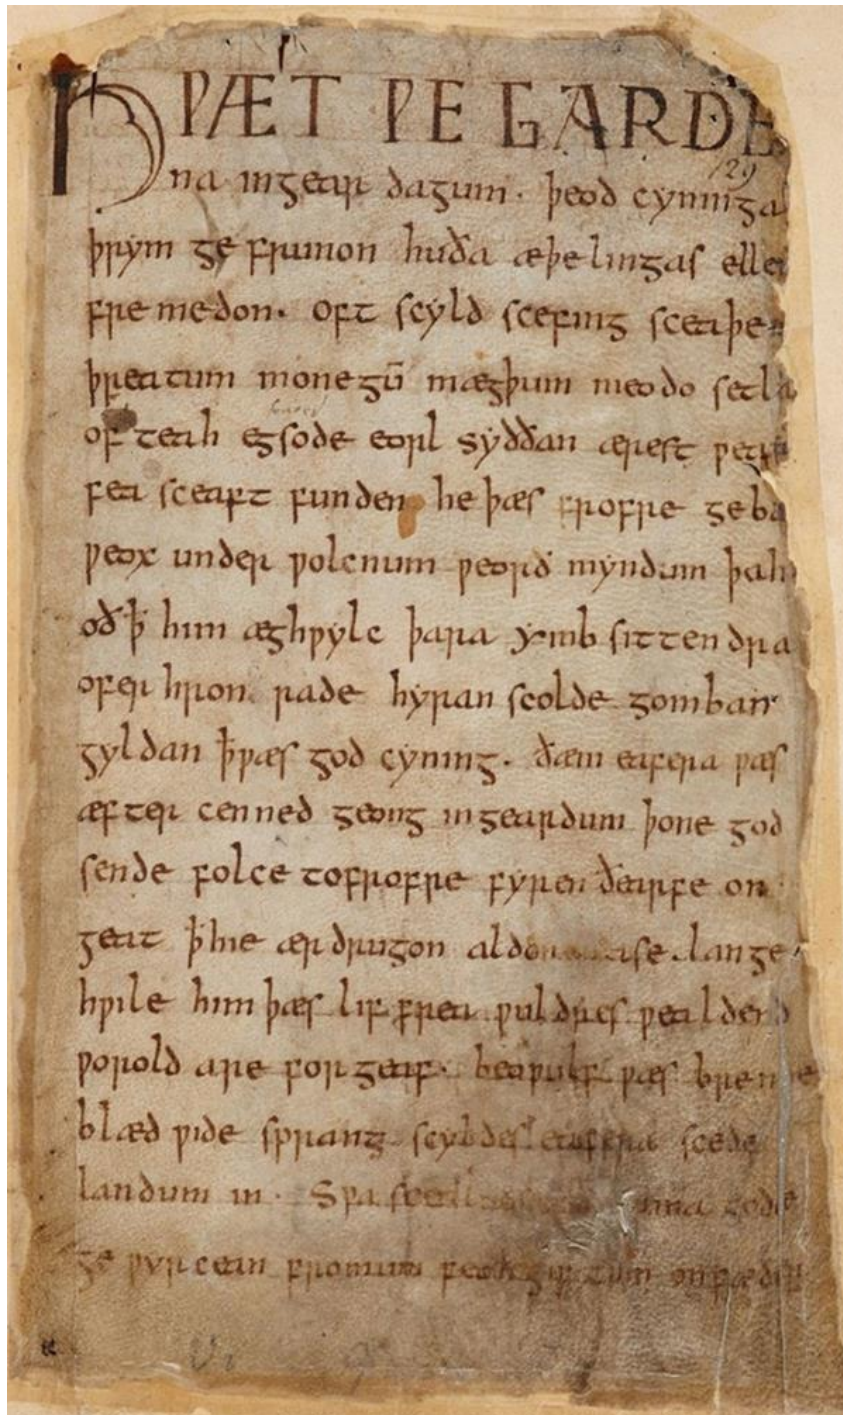 HǷÆT ǷE GARDE
na ingear dagum. þeod cyninga
þrym ge frunon huða æþelingas elle
fremedon. oft scyld scefing sceaþe
þreatum monegū mægþum meodo setla
of teah egsode eorl syððan ærest ƿear
fea sceaft funden he þæs frofre geba
ƿeox under ƿolcnum ƿeorð myndum þah
oð ꝥ him æghƿylc þara ymb sittendra
ofer hron rade hyran scolde gomban
gyldan ꝥ ƿæs god cyning. ðæm eafera ƿæs
æfter cenned geong ingeardum þone god
sende folce tofrofre fyren ðearfe on
geat ꝥ hie ær drugon aldor ase. lange
hƿile him þæs lif frea ƿuldres ƿealdend
ƿorold are for geaf. beoƿulf ƿæs breme
blæd ƿide sprang scyldes eafera scede
landum in. Sƿa guma gode
ge ƿyrcean fromum feoh giftum on fæder
129